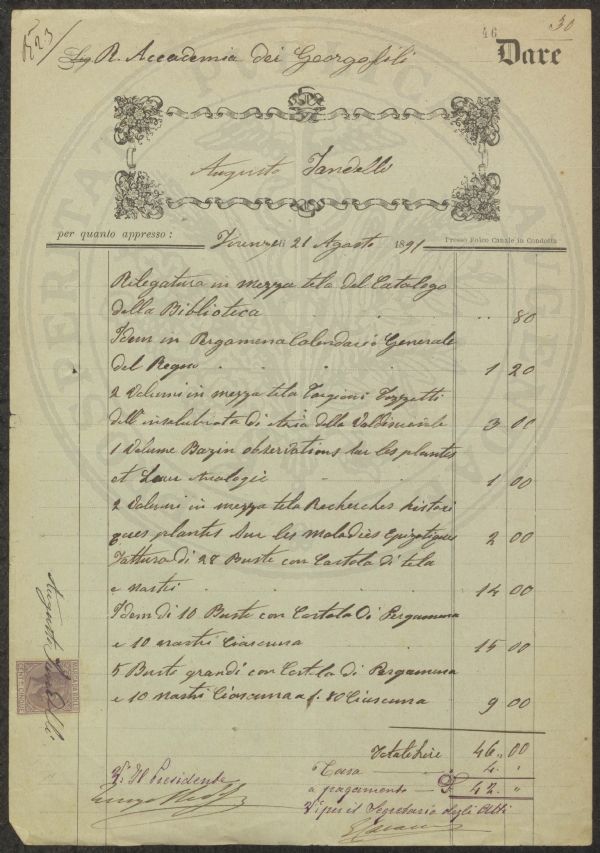 30
46
R. Accademia dei Georgofili
Dare
Augusto
per quanto appresso :
Firenze li 21 Agosto 1891
Presso Folco Canale in Condotta
Rilegatura in mezza tela del Catalogo
della Biblioteca .. 80
Idem in Pergamena Calendario Generale
del Regno 1 20
2 Volumi in mezza tela Targioni Tozzetti
dell' insalubrità di Aria della Valdinievole 3 00
1 Volume Bazin observations sur les plantes
et Leur Analogie 1 00
2 Volumi in mezza tela Recherches histori
ques plantes Sur les Maladies Epizotiques 2 00
Fattura di 28 Buste con Costola di tela
e nastri 14 00
Idem di 10 Buste con Costola di Pergamena
e 10 nastri Ciascuna 15 00
5 Buste grandi con Costola di Pergamena
e 10 nastri Ciascuna a f. 80 Ciascuna 9 00
Totale Lire 46,, 00
Tara 4. "
a pagamento 42. "
Vº Il Presidente
Vº per il Segretario degli Atti
Augusto
MARCA DA BOLLO
CENT. CINQUE
SPERITATI PUBLICAE AUGENDAE